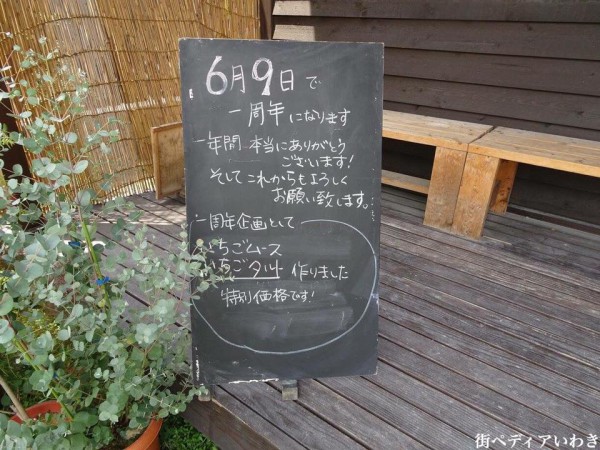 6月9日で
一周年になります
一年間 本当にありがとう
ございます!
そしてこれからもよろしく
お願い致します。
一周年企画として
いちごムース
いちごタルト 作りました
特別価格です!
街ペディアいわき